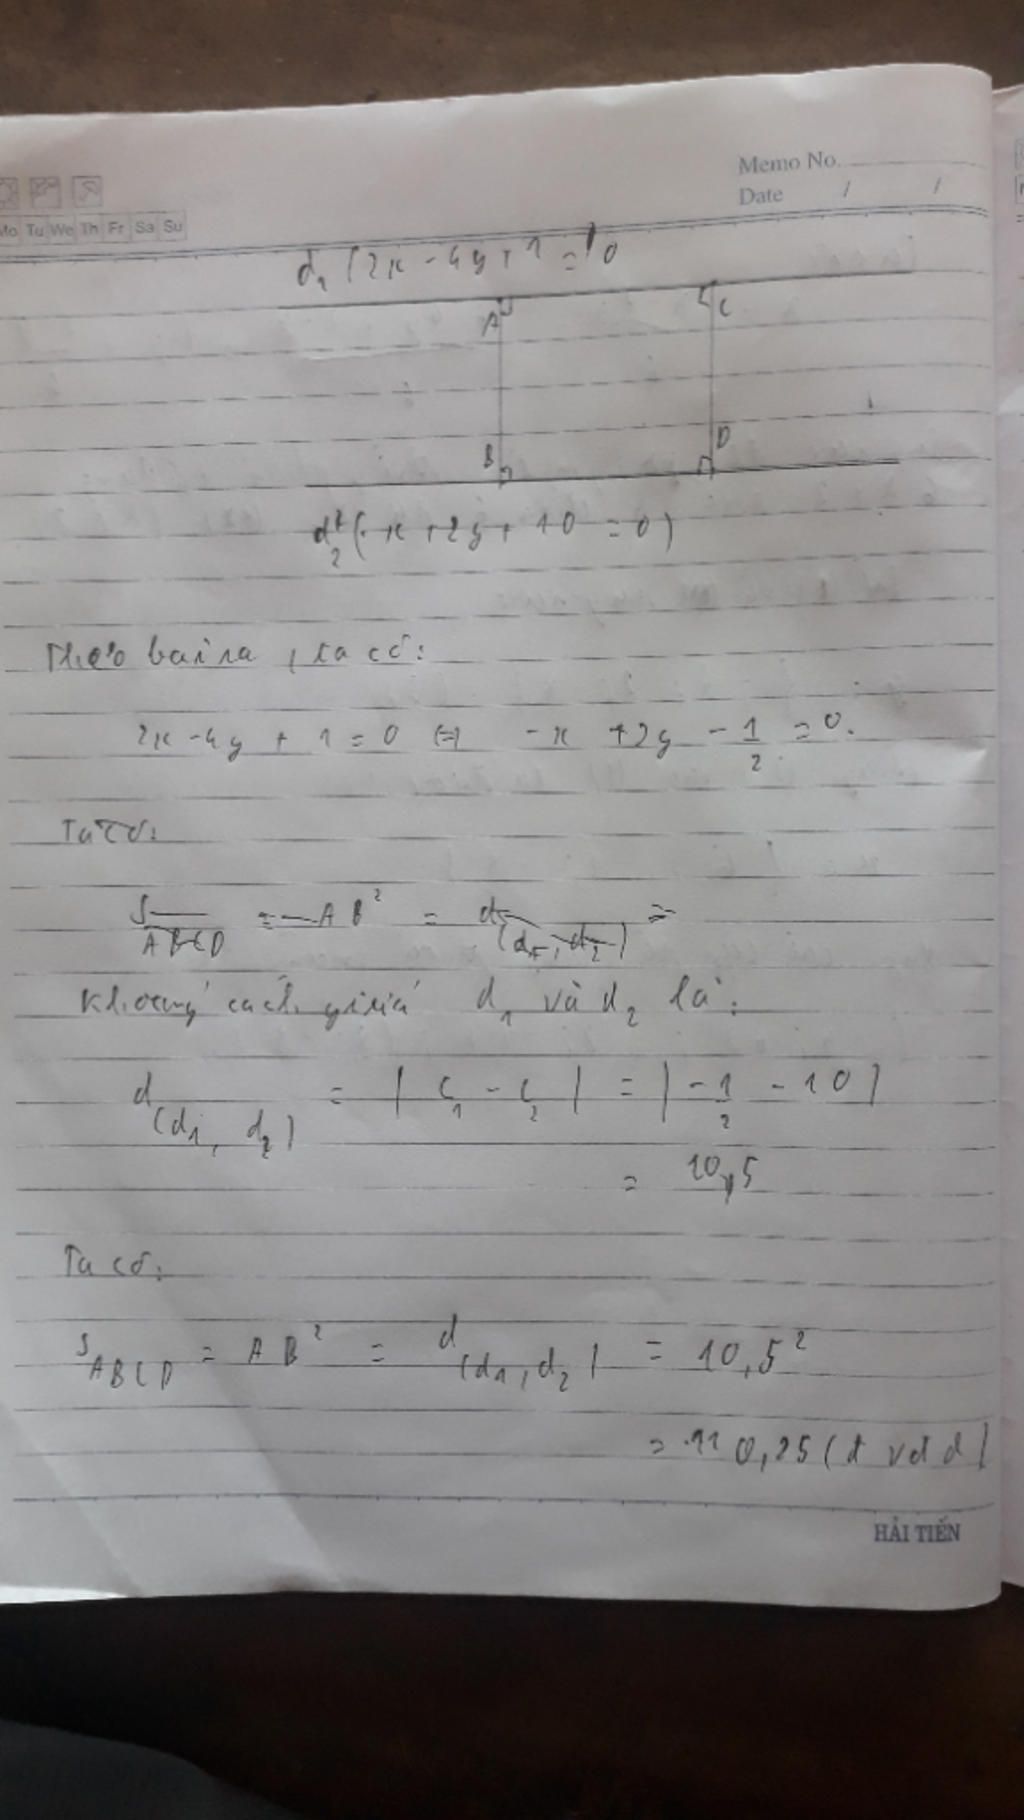 Memo No.
Date / /
Mo Tu We Th Fr Sa Su
d₁ (2x - 4y + 1 = 0
A C
B D
d₂ (-x + 2y + 10 = 0)
Theo bài ra, ta có:
2x - 4y + 1 = 0 ⇔ -x + 2y - 1/2 = 0.
Ta có:
S ABCD = AB² = d (d₁, d₂) =
Khoảng cách giữa d₁ và d₂ là:
d (d₁, d₂) = |C₁ - C₂| = |-1/2 - 10|
= 10,5
Ta có:
S ABCD = AB² = d (d₁, d₂) = 10,5²
= 110,25 (đvdd)
HẢI TIẾN